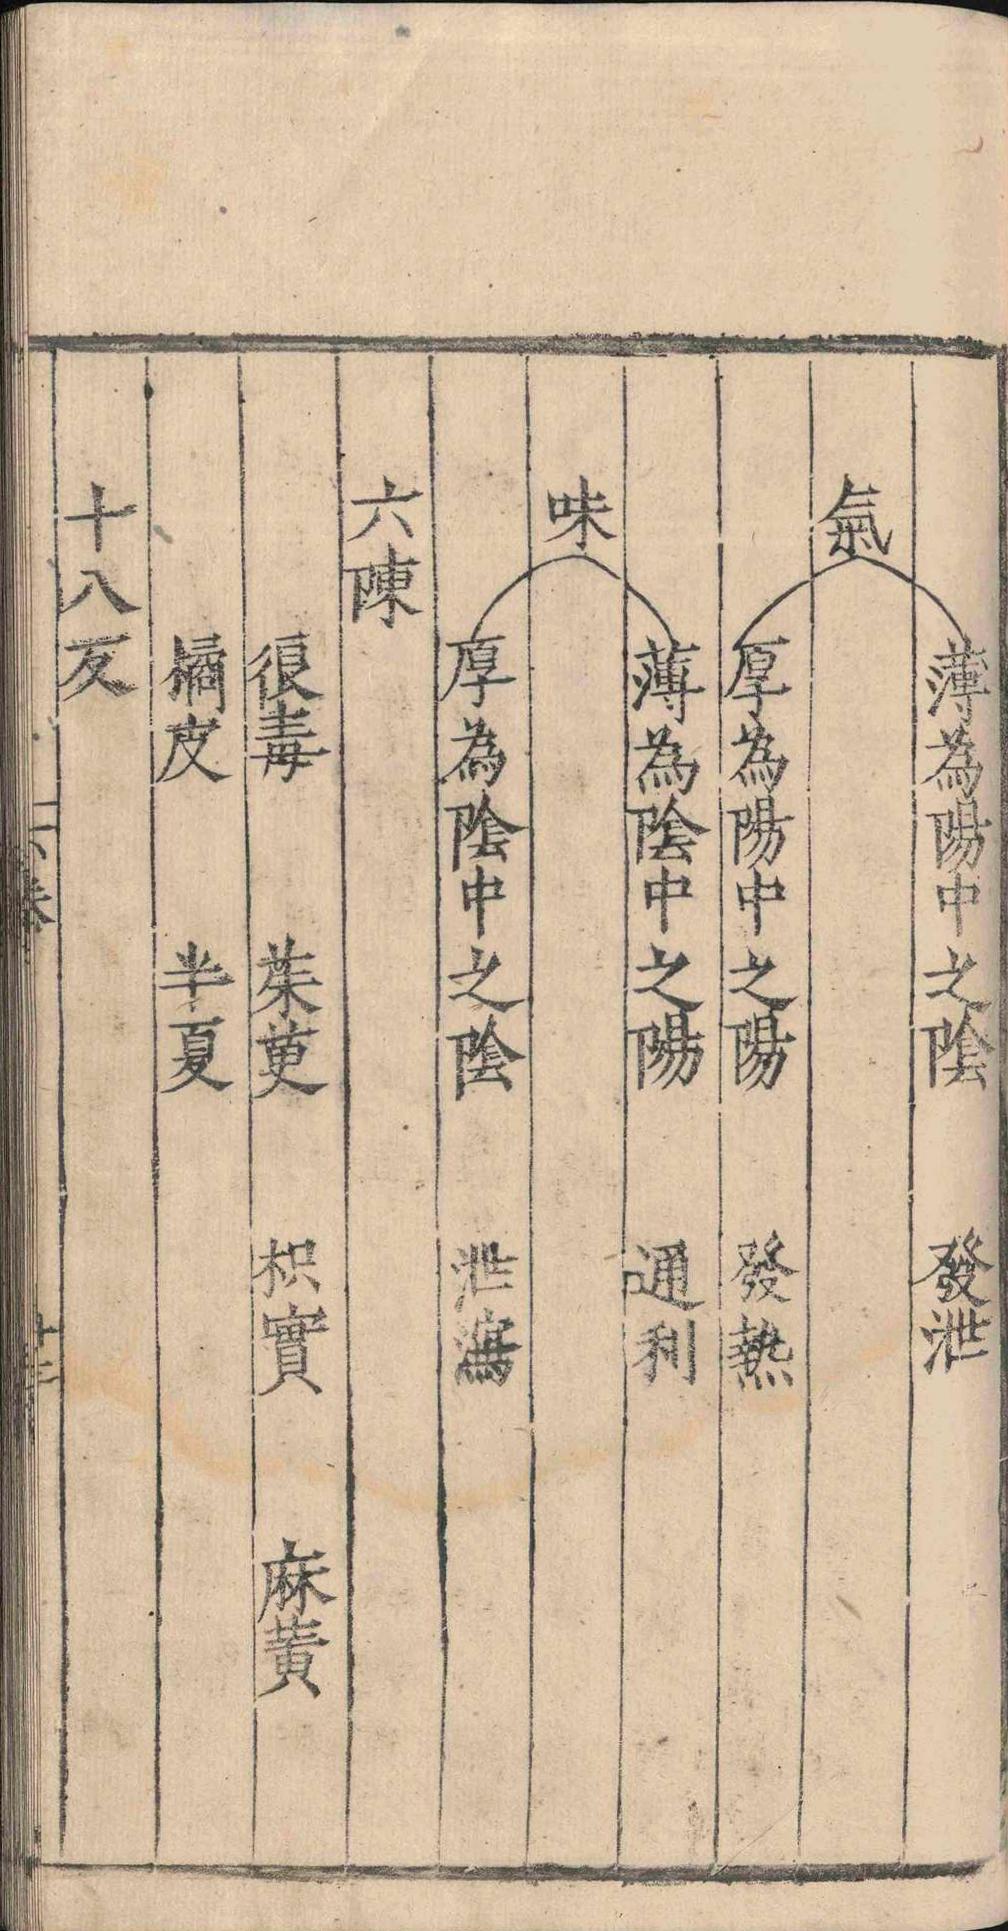 薄為陽中之陰　發泄
氣
厚為陽中之陽　發熱
薄為陰中之陽　通利
味
厚為陰中之陰　泄瀉
六陳
很毒　茱萸　枳實　麻黃
橘皮　半夏
十八反